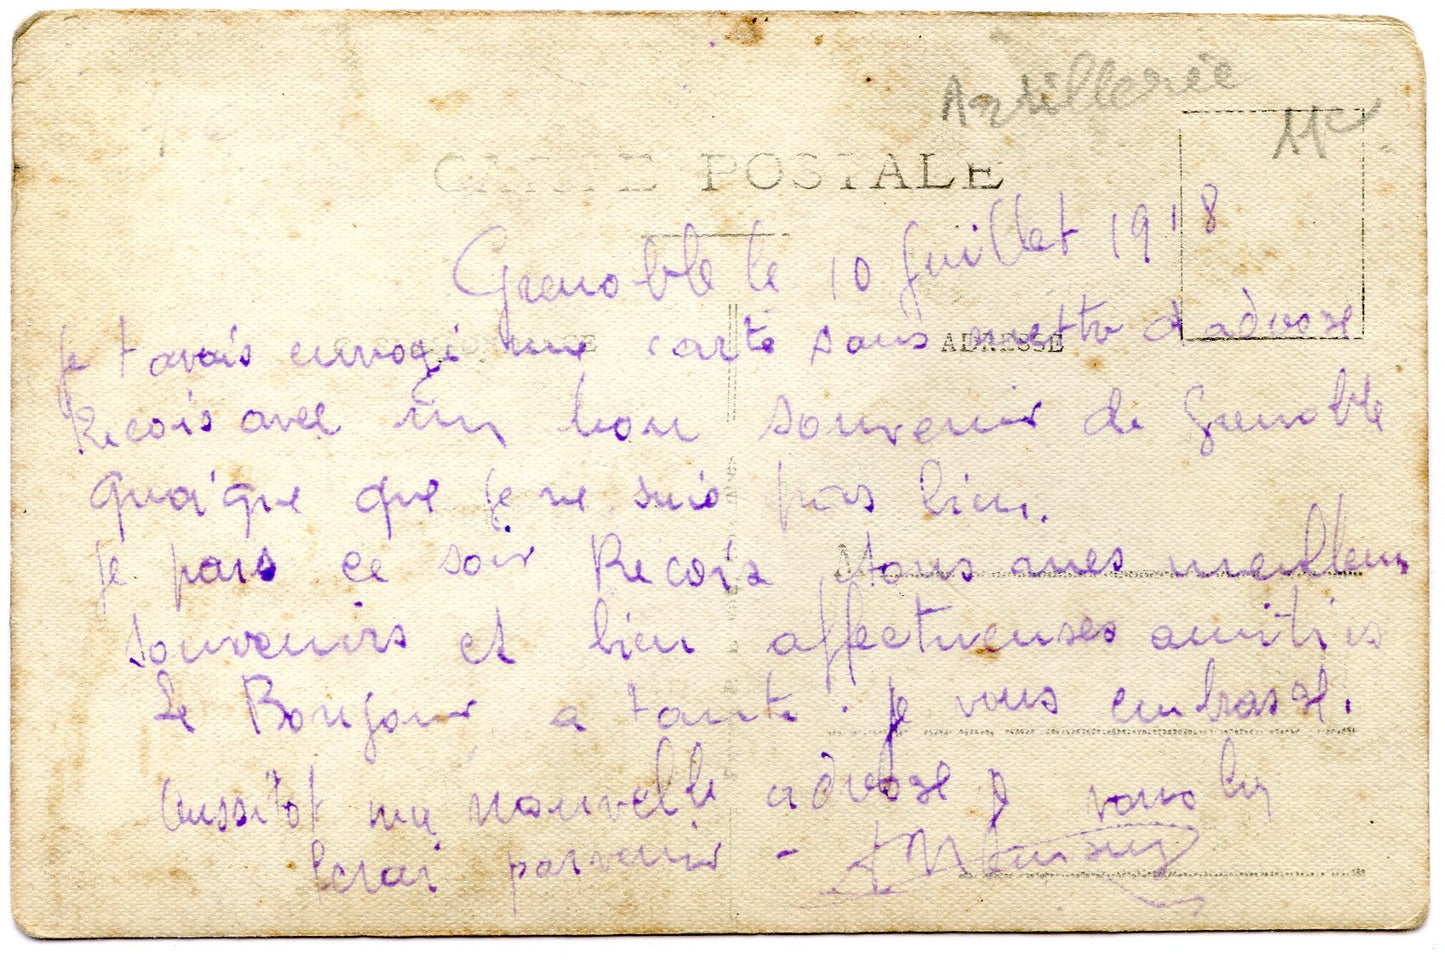 Artillerie
11e
CARTE POSTALE
Grenoble le 10 Juillet 1918
ADRESSE
Je t avais envoyé une carte sans mettre d adresse
Recois avec un bon souvenir de Grenoble
quoi'que que je ne suis pas bien.
Je pars ce soir Recois tous mes meilleurs
souvenirs et bien affectueuses amitiés
Le Bonjour a tante. je vous embrasse.
Aussitot ma nouvelle adresse je vous la
ferai parvenir -